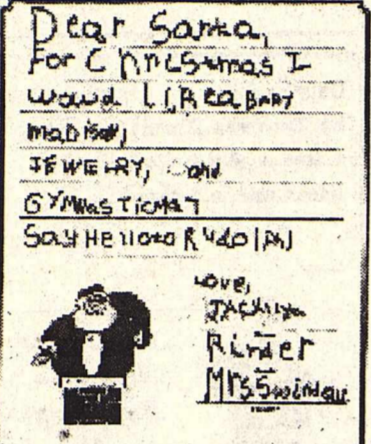 Dear Santa,
For Christmas I
woud liReaBABY
maDiSoN,
JEWELRY, and
GYMNASTiCMAT
Say Hello to Rudolph
Love,
JACKlyn
Rinder
Mrs